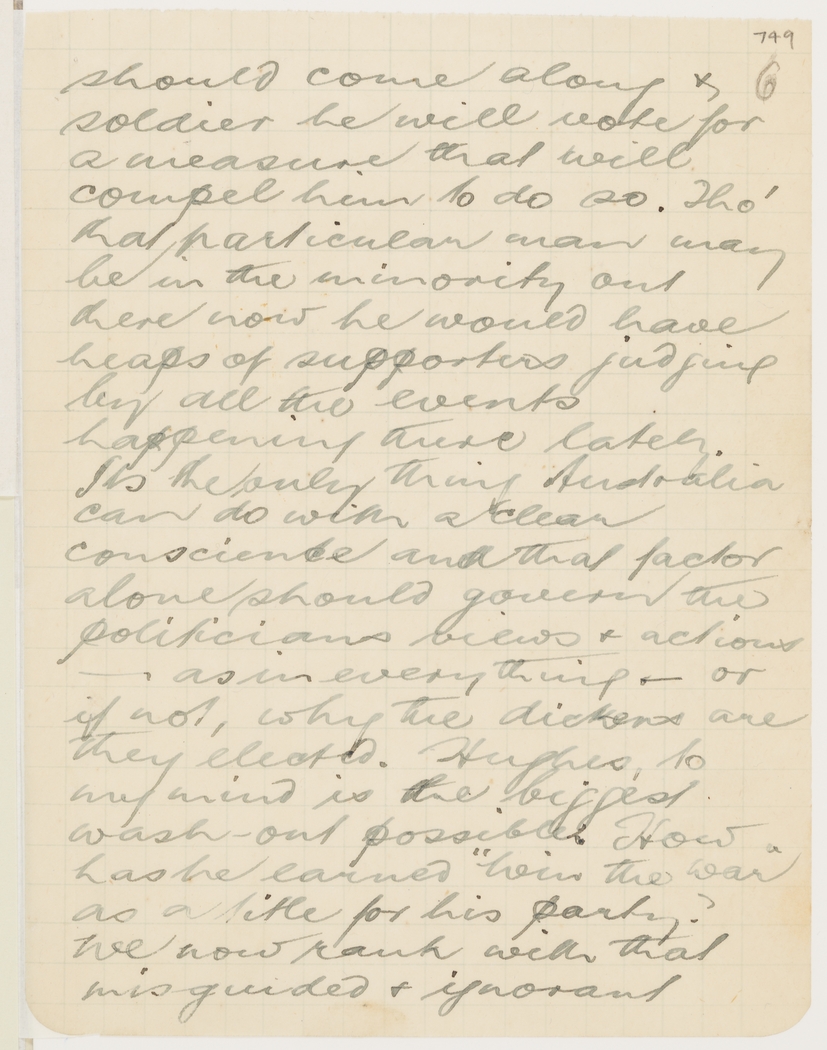 749
6
should come along &
soldier he will vote for
a measure that will
compel him to do so. Tho'
that particular man may
be in the minority out
there now he would have
heaps of supporters judging
by all the events
happening there lately.
Its the only thing Australia
can do with a clear
conscience and that factor
alone should govern the
politicians views & actions
— as in everything — or
if not, why the dickens are
they elected. Hughes, to
my mind is the biggest
wash-out possible. How
has he earned "win the war"
as a title for his party?
We now rank with that
misguided & ignorant